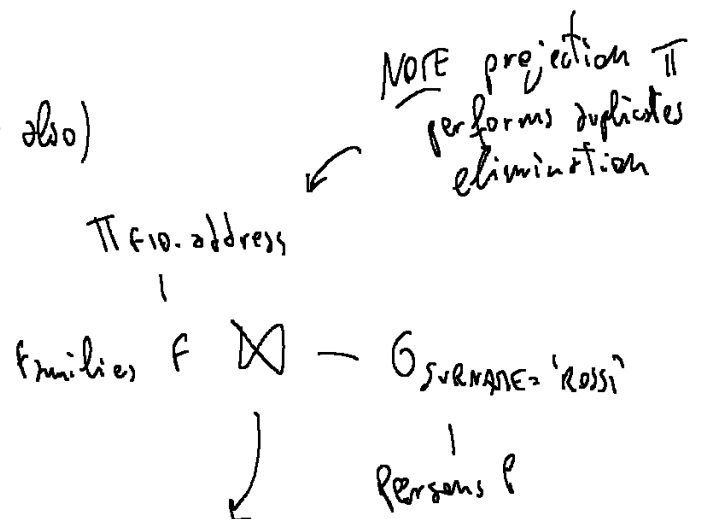 NOTE projection π
performs duplicates
elimination
also)
π FID. address
families F ⋈ — σ SURNAME = 'ROSSI'
Persons P